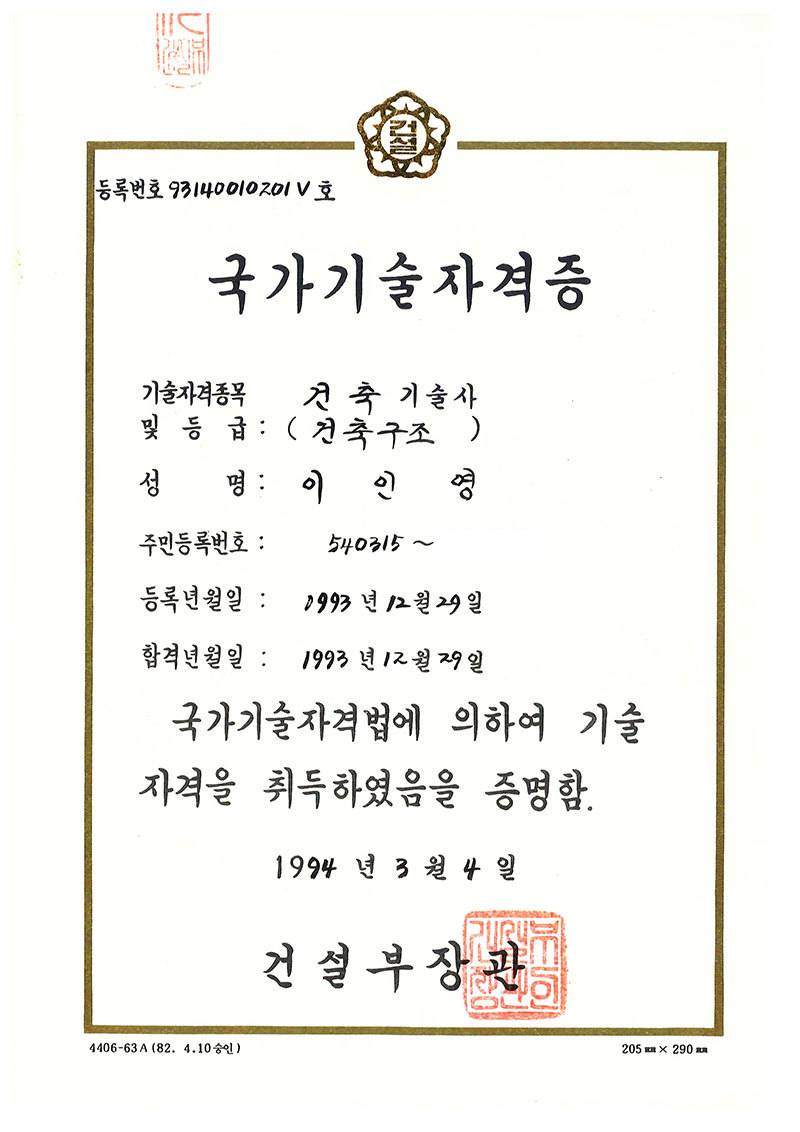 건설
등록번호 93140010201V 호
국가기술자격증
기술자격종목 건축 기술사
및 등 급 : ( 건축구조 )
성 명 : 이 인 영
주민등록번호 : 540315 ~
등록년월일 : 1993 년 12 월 29 일
합격년월일 : 1993 년 12 월 29 일
국가기술자격법에 의하여 기술
자격을 취득하였음을 증명함.
1994 년 3 월 4 일
건설부장관
4406-63A (82. 4.10승인)
205㎜ × 290㎜